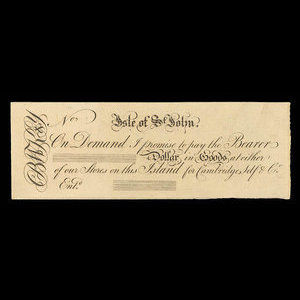 No
Isle of St. John.
On Demand I promise to pay the Bearer
Dollar, in Goods, at either
of our Stores on this Island for Cambridge, Self & Co.
Entd.